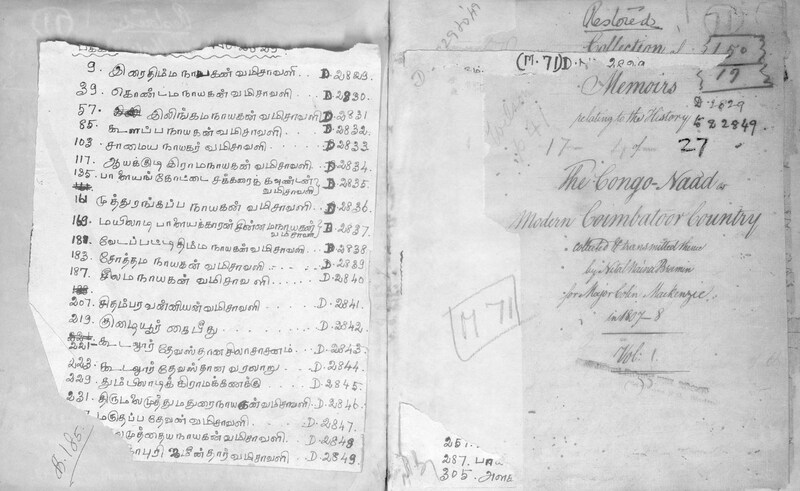 9. இரைதிம்ம நாயகன் வமிசாவளி .. D. 2829.
39. கொண்டம நாயகன் வமிசாவளி ... D. 2830.
57. இலிங்கம நாயகன் வமிசாவளி D. 2831
85. கூளப்ப நாயகன் வமிசாவளி .... D. 2832
103. சாமைய நாயகர் வமிசாவளி ... D. 2833
117. ஆயக்குடி கிராமநாயகன் வமிசாவளி D. 2834
135. பாளையங் கோட்டை சக்கரைக் கவுண்டன் வமிசாவளி D. 2835.
161 முத்துரங்கப்ப நாயகன் வமிசாவளி . . D. 2836.
169. மயிலாடி பாளையக்காரன் சின்னமநாயகன் வமிசாவளி D. 2837.
வேடப்பட்டி திம்ம நாயகன் வமிசாவளி . D. 2838
183. சோத்தம நாயகன் வமிசாவளி . . . D. 2839
187. லிம நாயகன் வமிசாவளி . . . . D. 2840
207. சிதம்பர வன்னியன் வமிசாவளி . . . D. 2841.
219. கைபீது . . . . . D. 2842.
221- கூடலூர் தேவஸ்தான சிலாசாசனம் . . D. 2843
223. கூடலூர் தேவஸ்தான வரலாறு . . . D. 2844
229. தும்பிலாடிக் கிராமக்கணக்கு . . . D. 2845
231. திருமலைமுத்து மதுரைநாயகன் வமிசாவளி . D. 2846
மருதப்ப தேவன் வமிசாவளி . . . . D. 2847
முத்தைய நாயகன் வமிசாவளி . . . D. 2848
புரி ஜமீன்தார் வமிசாவளி . . . D. 2849
B. 185
Restored
Collection
150
19
(M. 71) D. No 2829
Memoirs
D. 2829
relating to the History
to 2849
17- 4 of- 27
The Congo-Naad or
Modern Coimbatoor Country
collected & transmitted them
by Nitala Naina Bramin
for Major Colin Mackenzie
in 1807-8
Vol: 1.
M 71
251.
287. பாய
305. அளக